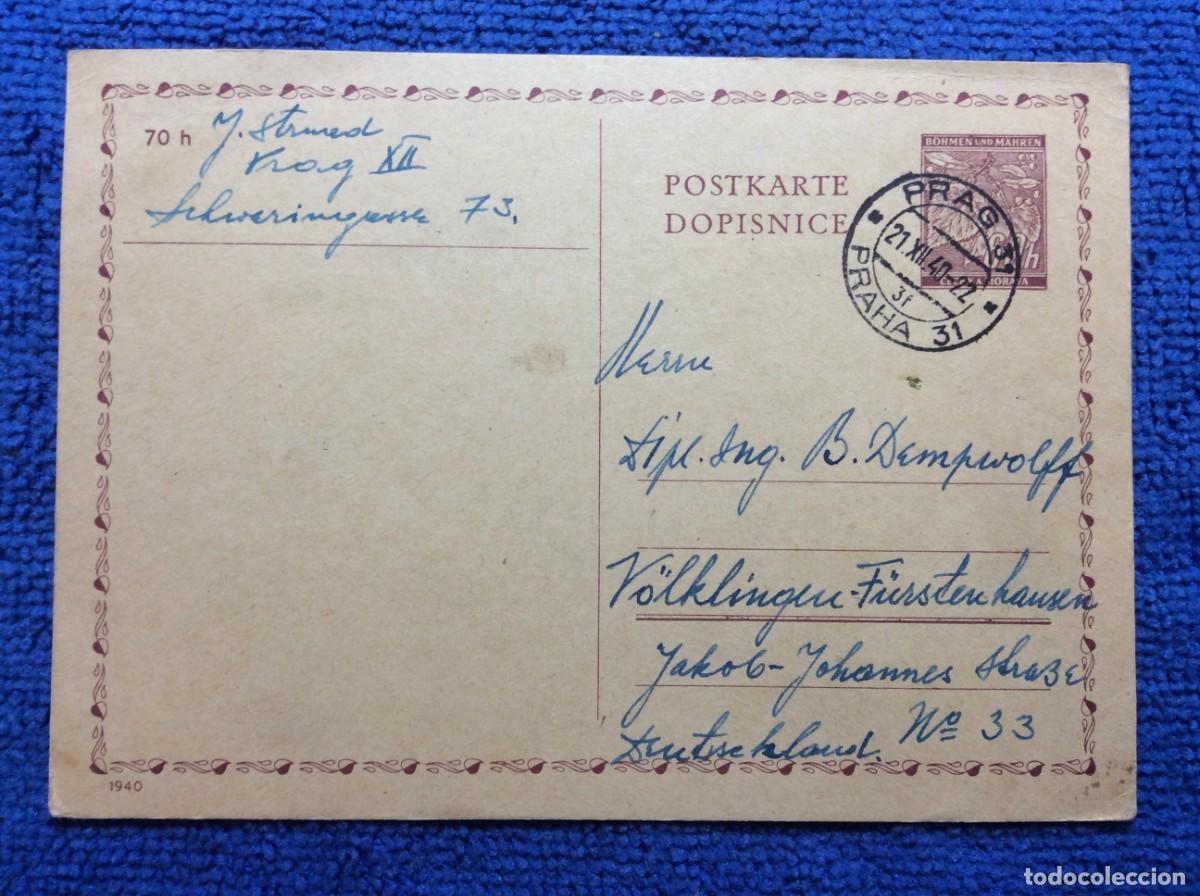 70 h
J. Strnad
Prag XII
Schweringasse 73.
POSTKARTE
DOPISNICE
BÖHMEN UND MÄHREN
PRAG 31
21.XII.40-22
3f
PRAHA 31
h
Herrn
Dipl. Ing. B. Dempwolff
Völklingen-Fürstenhausen
Jakob-Johannes Straße
No 33
Deutschland.
1940
todocoleccion